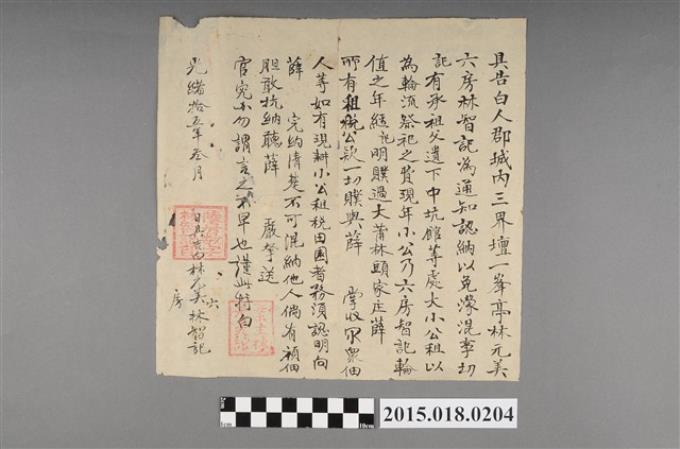 具告白人郡城內三界壇一峯亭林元美
六房林智記為通知認納以免濛混事切
記有承祖父遺下中坑館等處大小公租以
為輪流祭祀之費現年小公乃六房智記輪
值之年經託明贌過大莆林頭家庄薛
所有租稅公款一切贌與薛 掌收眾佃
人等如有現耕小公租稅田園者務須認明向
薛 完納清楚不可混納他人倘有頑佃
胆敢抗納聽薛 嚴拏送
官究亦勿謂言之不早也謹此特白
光緒拾五年叁月 日具告白林元美六房林智記
1cm
10cm
2015.018.0204